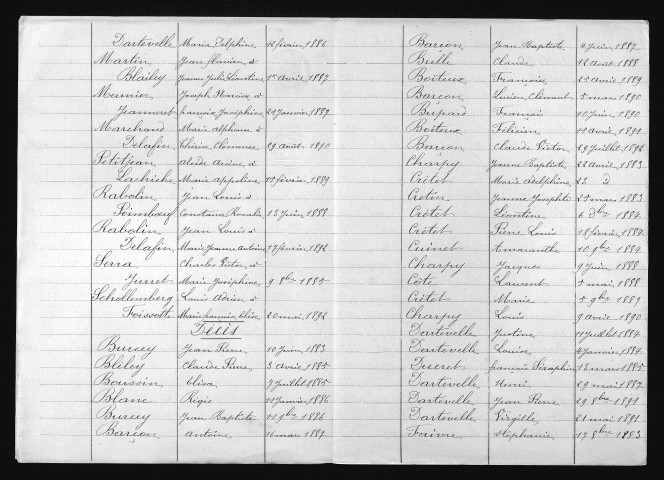 Dartevelle Marie Delphine 16 février 1886
Martin Jean Flavien &
Blailey Jeanne Julie Léontine 1er avril 1889
Meunier Joseph Narcisse &
Jeanneret françoise Joséphine 24 Janvier 1889
Marchand Marie Alphonse &
Delafin Thérèse Clémence 29 août 1890
Petitjean Alcide Arsène &
Lachiche Marie Appoline 15 février 1889
Rabolin Jean Louis &
Constance Rosalie 13 Juin 1888
Rabolin Jean Louis &
Delafin Marie Jeanne 27 février 1892
Serra Charles Victor &
Jurret Marie Joséphine 9 8bre 1885
Schollemberg Louis Adrien &
Foissotte Marie françoise Elisa 20 mai 1892
Décès
Burcey Jean Pierre 10 Juin 1883
Bliley Claude Pierre 3 avril 1885
Boussin Elisa 7 Juillet 1885
Blanc Régis 11 Janvier 1886
Burcey Jean Baptiste 11 9bre 1886
Barçon Antoine 16 mars 1887
Barçon Jean Baptiste 4 Juin 1887
Brille Claude 12 août 1888
Boiteux François 25 avril 1889
Barçon Lucien Clément 5 mars 1890
Bépard François 10 Juin 1890
Boiteux Félicien 15 avril 1891
Barçon Claude Victor 29 Juillet 1892
Charpy Jeanne Baptiste 22 avril 1883
Crétet Marie Adelphine 23 d
Cretin Jeanne Josephte 25 mars 1883
Crétet Léontine 6 8bre 1884
Crétet Pierre Louis 18 février 1884
Cuinet Amaranthe 10 9bre 1884
Charpy Jacques 9 Juin 1888
Cote Laurent 5 mai 1888
Crétet Marie 5 9bre 1889
Charpy Louis 9 avril 1890
Dartevelle Justine 11 Juillet 1884
Dartevelle Louise 4 Janvier 1884
Ducret françois Séraphin 13 mars 1885
Dartevelle Henri 29 mai 1887
Dartevelle Jean Pierre 19 8bre 1891
Dartevelle Virgille 21 mai 1891
Faivre Stéphanie 17 8bre 1883